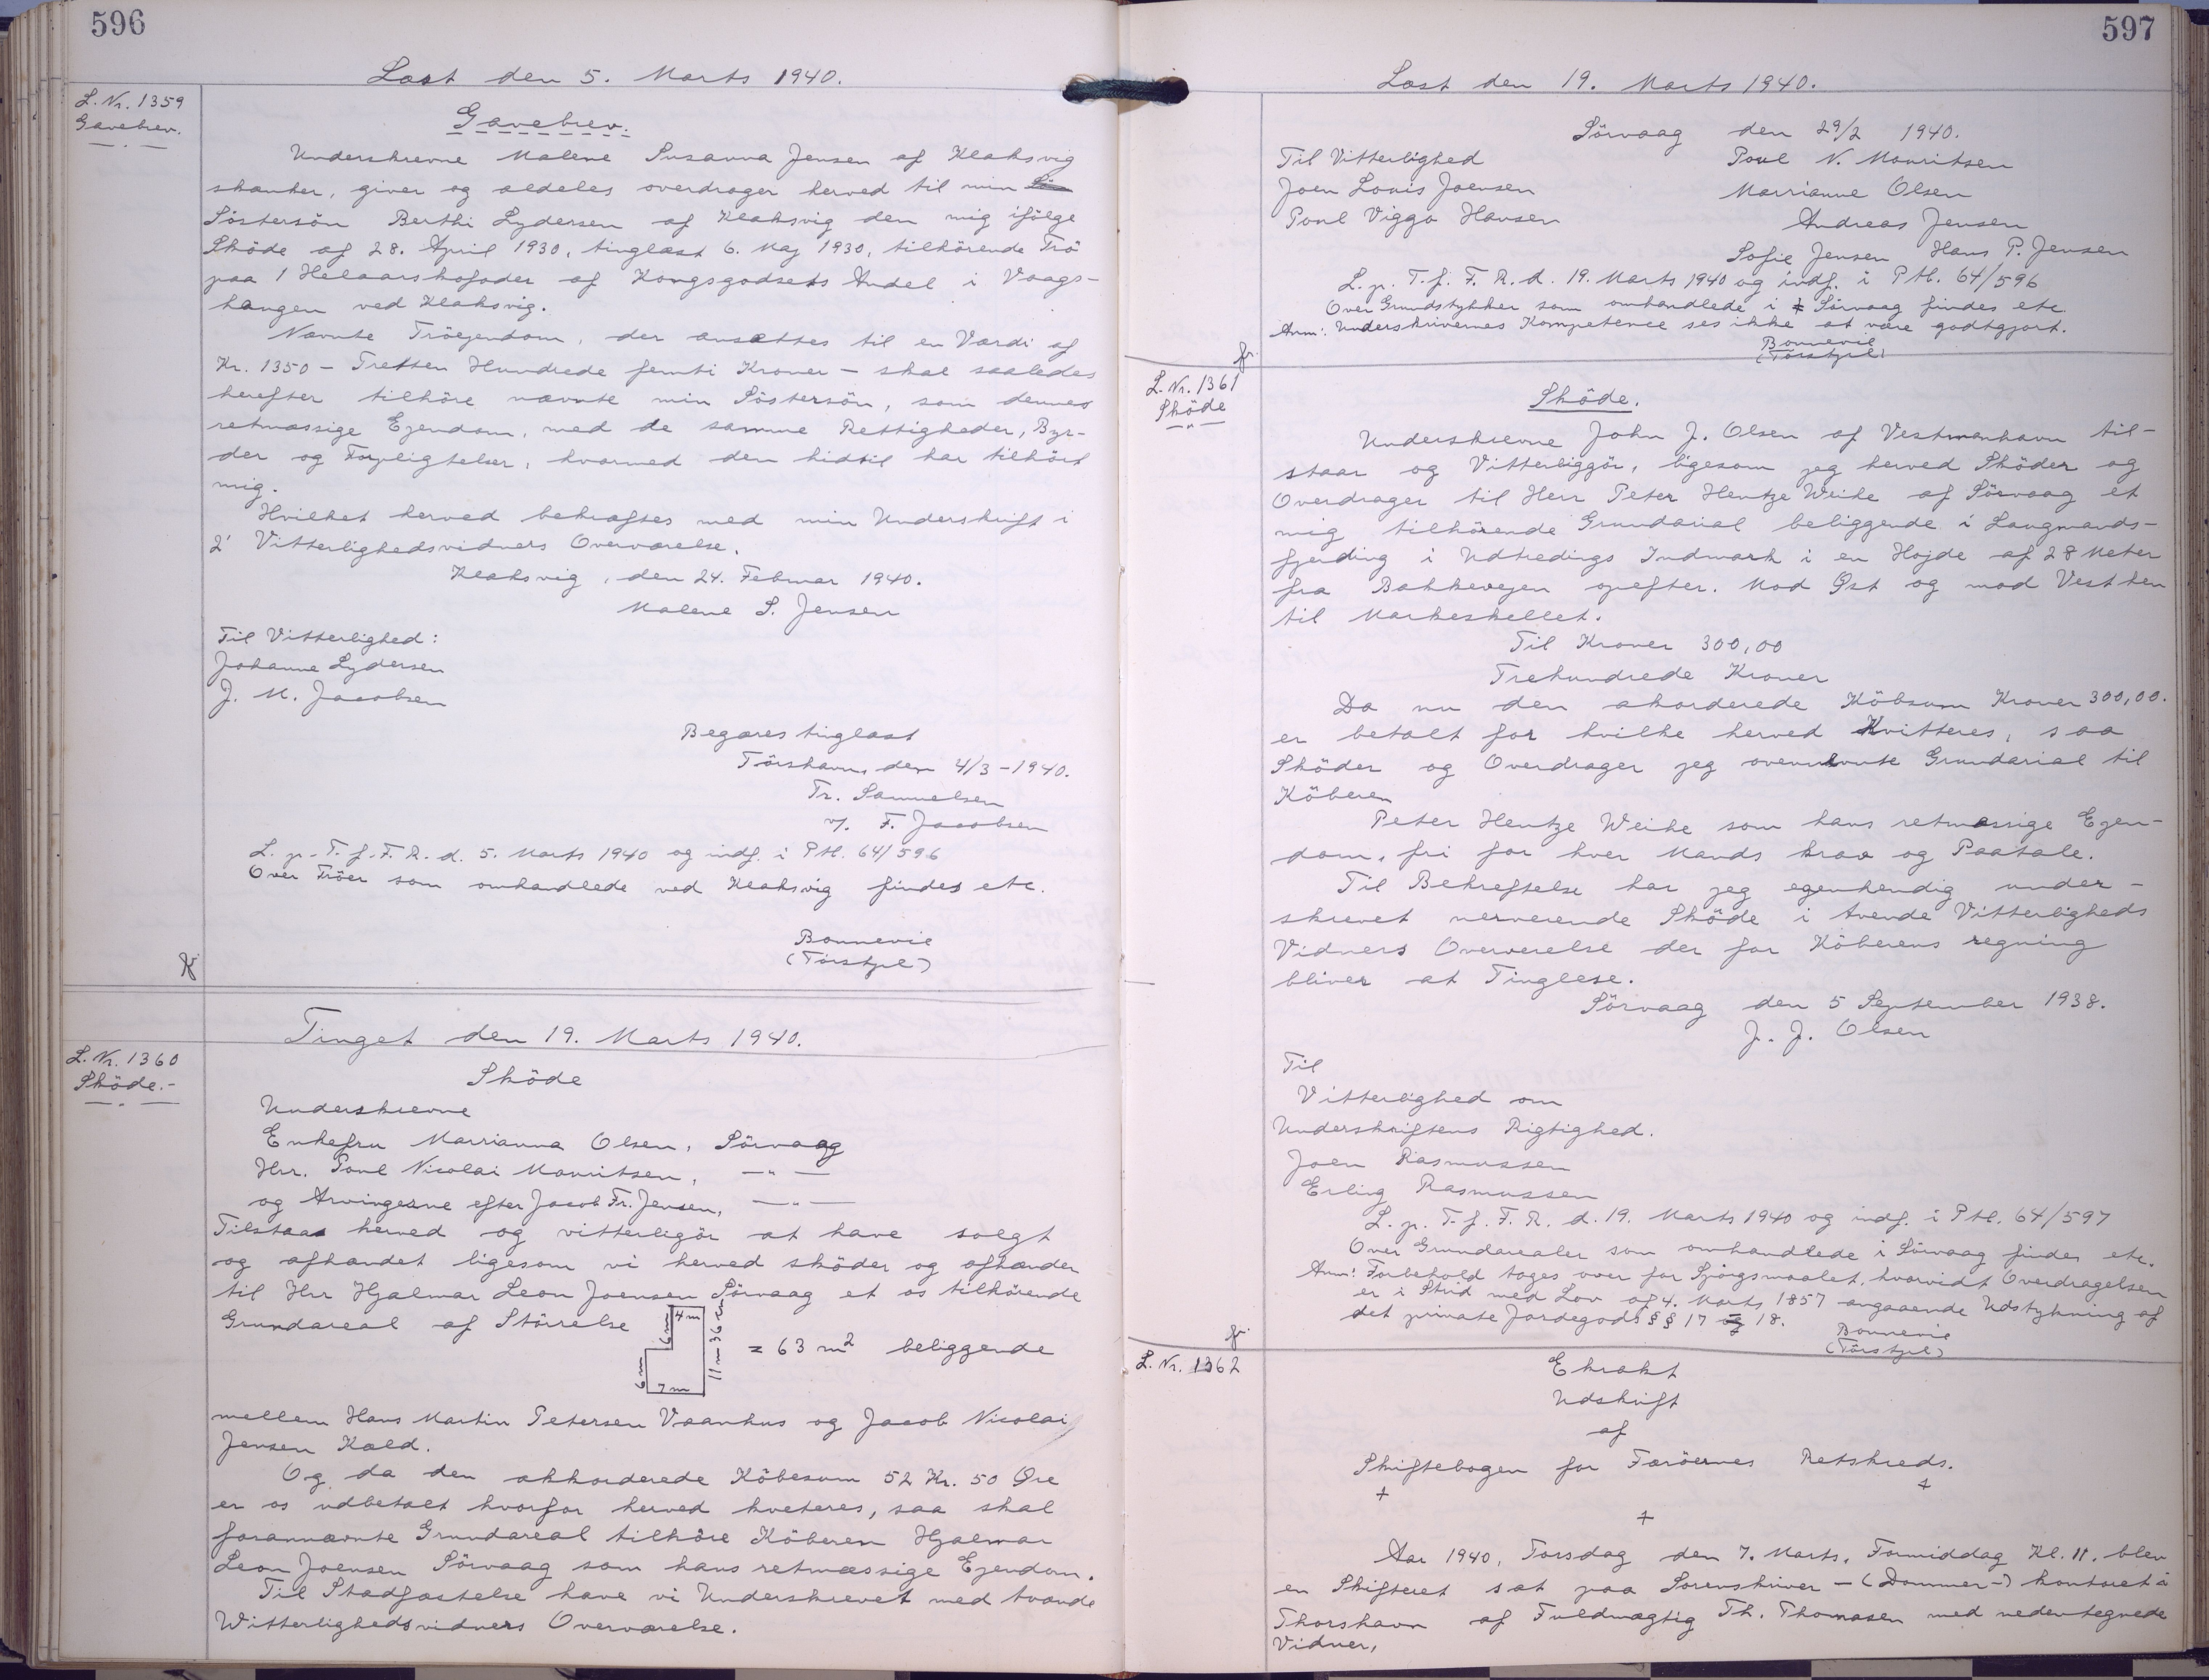 596
Læst den 5. Marts 1940.
L. Nr. 1359
Gavebrev.
Gavebrev.
Underskrevne Malene Susanna Jensen af Klaksvig
skænker, giver og aldeles overdrager herved til min
Söstersön Berthi Lydersen af Klaksvig den mig ifölge
Sköde af 28. April 1930, tinglæst 6. Maj 1930, tilhörende Trö
paa 1 Helaarskofoder af Kongsgodsets Andel i Vaags-
hangen ved Klaksvig.
Nævnte Tröejendom, der ansættes til en Værdi af
Kr. 1350 - Tretten Hundrede femti Kroner - skal saaledes
herefter tilhöre nævnte min Söstersön, som dennes
retmæssige Ejendom, med de samme Rettigheder, Byr-
der og Forpligtelser, hvormed den hidtil har tilhört
mig.
Hvilket herved bekræftes med min Underskrift i
2' Vitterlighedsvidners Overværelse.
Klaksvig, den 24. Februar 1940.
Malene S. Jensen
Til Vitterlighed:
Johanne Lydersen
J. M. Jacobsen
Begæres tinglæst
Tórshavn, den 4/3-1940.
Tr. Samuelsen
v/. F. Jacobsen
L. p. T. f. F. R. d. 5. Marts 1940 og indf. i Ptl. 64/596
Over Tröer som omhandlede ved Klaksvig findes etc.
Bonnevie
(Torstjel)
Tinget den 19. Marts 1940.
L. Nr. 1360
Sköde.-
Sköde
Underskrevne
Enkefru Marrianna Olsen, Sörvaag
Hrr. Poul Nicolai Mouritsen, -"-
og Arvingerne efter Jacob Fr. Jensen, -"-
Tilstaar herved og vitterligör at have solgt
og afhændet ligesom vi herved sköder og afhænder
til Hrr Hjalmar Leon Joensen Sörvaag et os tilhörende
Grundareal af Störrelse 6 m 4 m 11 m 36 cm 6 m 7 m = 63 m² beliggende
mellem Hans Martin Petersen Vaanhus og Jacob Nicolai
Jensen Kæld.
Og da den akkorderede Köbesum 52 Kr. 50 Øre
er os udbetalt hvorfor herved kveteres, saa skal
forannævnte Grundareal tilhöre Köberen Hjalmar
Leon Joensen Sörvaag som hans retmæssige Ejendom.
Til Stadfæstelse have vi Underskrevet med tvende
Witterlighedsvidners Overværelse.
597
Læst den 19. Marts 1940.
Sörvaag den 29/2 1940.
Til Vitterlighed Poul N. Mouritsen
Joen Louis Joensen Marrianne Olsen
Poul Viggo Hansen Andreas Jensen
Sofie Jensen Hans P. Jensen
L. p. T. f. F. R. d. 19. Marts 1940 og indf. i Ptl. 64/596
Over Grundstykker som omhandlede i Sörvaag findes etc.
Anm: Underskrivernes Kompetence ses ikke at være godtgjort.
Bonnevie
(Torstjel)
L. Nr. 1361
Sköde
Sköde.
Underskrevne John J. Olsen af Vestmanhavn til-
staar og Vitterliggör, ligesom jeg herved Sköder og
Overdrager til Herr Peter Hentze Weihe af Sörvaag et
mig tilhörende Grundarial beliggende i Laugmands-
fjerding i Udtredings Indmark i en Højde af 28 Meter
fra Bakkevejen opefter. Mod Øst og mod Vest hen
til Markeskellet.
Til Kroner 300,00
Trehundrede Kroner
Da nu den akorderede Köbsum Kroner 300,00.
er betalt for hvilke herved Kvitteres, saa
Sköder og Overdrager jeg ovennævnte Grundarial til
Köberen
Peter Hentze Weihe som hans retmæssige Ejen-
dom, fri for hver Mands krav og Paatale.
Til Bekreftelse har jeg egenhendig under-
skrevet nerverende Sköde i tvende Vitterligheds
Vidners Oververelse der for Köberens regning
bliver at Tinglese.
Sörvaag den 5 September 1938.
J. J. Olsen
Til
Vitterlighed om
Underskriftens Rigtighed.
Joen Rasmussen
Erling Rasmussen
L. p. T. f. F. R. d. 19. Marts 1940 og indf. i Ptl. 64/597
Over Grundarealer som omhandlede i Sörvaag findes etc.
Anm: Forbehold tages over for Spörgsmaalet, hvorvidt Overdragelsen
er i Strid med Lov af 4. Marts 1857 angaaende Udstykning af
det private Jordegods §§ 17 og 18.
Bonnevie
(Torstjel)
L. Nr. 1362
Ekrakt
Udskrift
af
Skiftebogen for Færöernes Retskreds.
+ +
+
Aar 1940, Torsdag den 7. Marts, Formiddag Kl. 11. blev
en Skifteret sat paa Sorenskriver-(Dommer-) kontoret i
Thorshavn af Fuldmægtig Th. Thomasen med nedentegnede
Vidner,